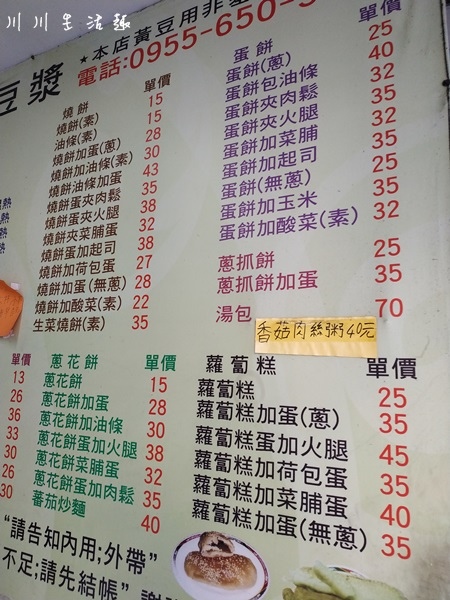 川川生活趣
★本店黃豆用非基
電話:0955-650-5
豆漿
燒餅 單價
燒餅(素) 15
油條(素) 15
燒餅加蛋(蔥) 28
燒餅加油條(素) 30
燒餅油條加蛋 43
燒餅蛋夾肉鬆 35
燒餅蛋夾火腿 38
燒餅夾菜脯蛋 32
燒餅蛋加起司 38
燒餅加荷包蛋 27
燒餅加蛋(無蔥) 28
燒餅加酸菜(素) 22
生菜燒餅(素) 35
蛋餅 單價
蛋餅(蔥) 25
蛋餅包油條 40
蛋餅夾肉鬆 32
蛋餅夾火腿 35
蛋餅加菜脯 32
蛋餅加起司 35
蛋餅(無蔥) 25
蛋餅加玉米 35
蛋餅加酸菜(素) 32
蔥抓餅 25
蔥抓餅加蛋 35
湯包 70
香菇肉絲粥40元
熱
熱
熱
單價
13
26
36
33
30
26
30
蔥花餅 單價
蔥花餅 15
蔥花餅加蛋 28
蔥花餅加油條 30
蔥花餅蛋加火腿 38
蔥花餅菜脯蛋 32
蔥花餅蛋加肉鬆 35
蕃茄炒麵 40
蘿蔔糕 單價
蘿蔔糕 25
蘿蔔糕加蛋(蔥) 35
蘿蔔糕蛋加火腿 45
蘿蔔糕加荷包蛋 35
蘿蔔糕加菜脯蛋 40
蘿蔔糕加蛋(無蔥) 35
"請告知內用;外帶"
不足;請先結帳"謝